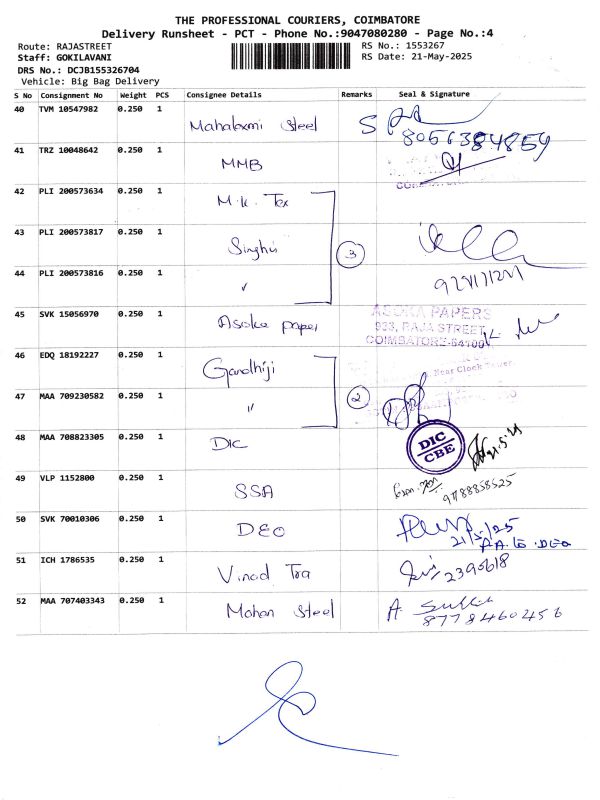 THE PROFESSIONAL COURIERS, COIMBATORE
Delivery Runsheet - PCT - Phone No.:9047080280 - Page No.:4
Route: RAJASTREET
RS No.: 1553267
Staff: GOKILAVANI
RS Date: 21-May-2025
DRS No.: DCJB155326704
Vehicle: Big Bag Delivery
S No Consignment No Weight PCS Consignee Details Remarks Seal & Signature
40 TVM 10547982 0.250 1 Mahalaxmi Steel
8056384859
41 TRZ 10048642 0.250 1 MMB
42 PLI 200573634 0.250 1 M.K. Tex
43 PLI 200573817 0.250 1 Singhvi 3
44 PLI 200573816 0.250 1 "
45 SVK 15056970 0.250 1 Asoka paper
ASOKA PAPERS
933, RAJA STREET
COIMBATORE-64100
46 EDQ 18192227 0.250 1 Gandhiji
Near Clock Tower.
47 MAA 709230582 0.250 1 " 2
48 MAA 708823305 0.250 1 DIC
DIC
CBE
21.5.25
49 VLP 1152800 0.250 1 SSA
9788858525
50 SVK 70010306 0.250 1 DEO
21/5/25
P.A. to DEO
51 ICH 1786535 0.250 1 Vinod Tra
2390618
52 MAA 707403343 0.250 1 Mohan Steel
8778460456